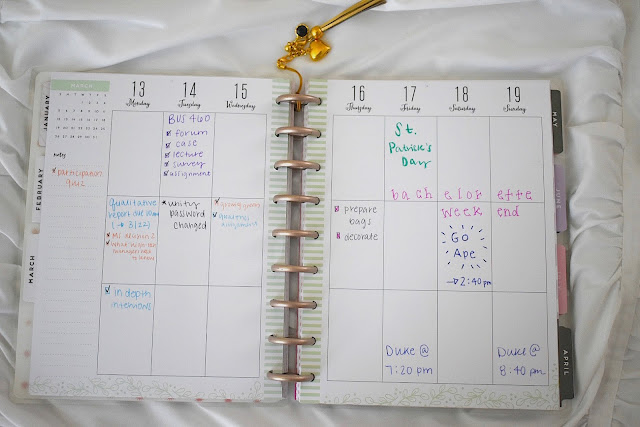 MARCH
notes
participation
quiz
13
Monday
14
Tuesday
15
Wednesday
BUS 460
forum
case
lecture
survey
assignment
Qualitative
report due
(→ 3/22)
unity
password
changed
in depth
interviews
16
Thursday
17
Friday
18
Saturday
19
Sunday
St.
Patrick's
Day
bachelorette
week end
prepare
bags
decorate
Go
Ape
→2:40pm
Duke @
7:20 pm
Duke @
8:40 pm
JANUARY
FEBRUARY
MARCH
MAY
JUNE
APRIL